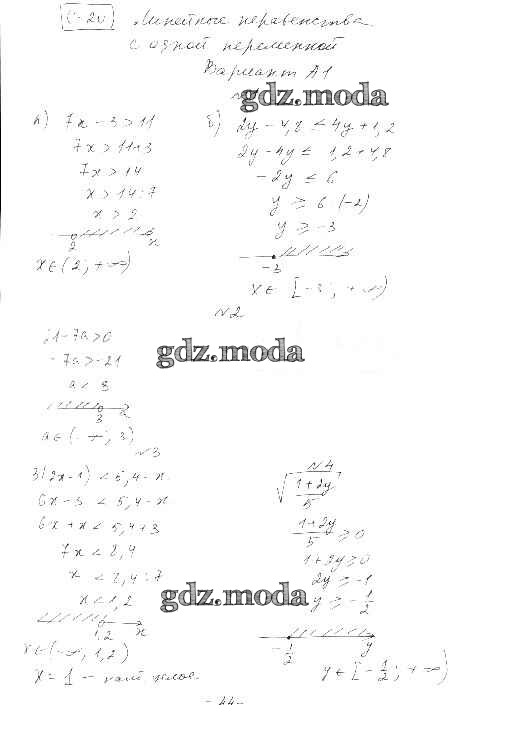 С-20 Линейные неравенства
с одной переменной
Вариант А1
gdz.moda
а) 7x - 3 > 11
7x > 11+3
7x > 14
x > 14:7
x > 2
2 x
x ∈ (2; +∞)
б) 2y - 4,8 ≤ 4y + 1,2
2y - 4y ≤ 1,2 + 4,8
-2y ≤ 6
y ≥ 6:(-2)
y ≥ -3
-3
x ∈ [-3; +∞)
№2
21-7a>0
-7a>-21
a < 3
3 a
a ∈ (-∞; 3)
gdz.moda
№3
3(2x-1) < 5,4-x
6x-3 < 5,4-x
6x+x < 5,4+3
7x < 8,4
x < 8,4:7
x < 1,2
1,2 x
x ∈ (-∞, 1,2)
x = 1 – наиб. целое.
№4
√(1+2y)/5
(1+2y)/5 ≥ 0
1+2y ≥ 0
2y ≥ -1
y ≥ -1/2
gdz.moda
-1/2 y
y ∈ [-1/2; +∞)
- 44 -